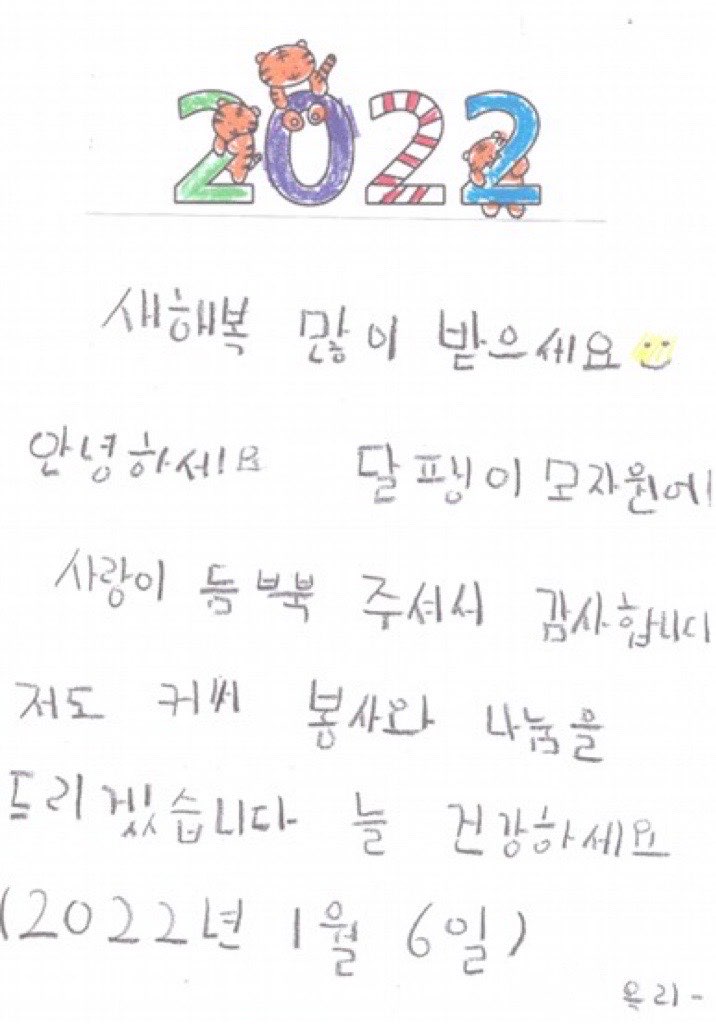 2022
새해복 많이 받으세요
안녕하세요 달팽이 모자원에
사랑이 듬뿌북 주셔서 감사합니다
저도 커씨 봉사와 나눔을
드리겠습니다 늘 건강하세요
(2022년 1월 6일)